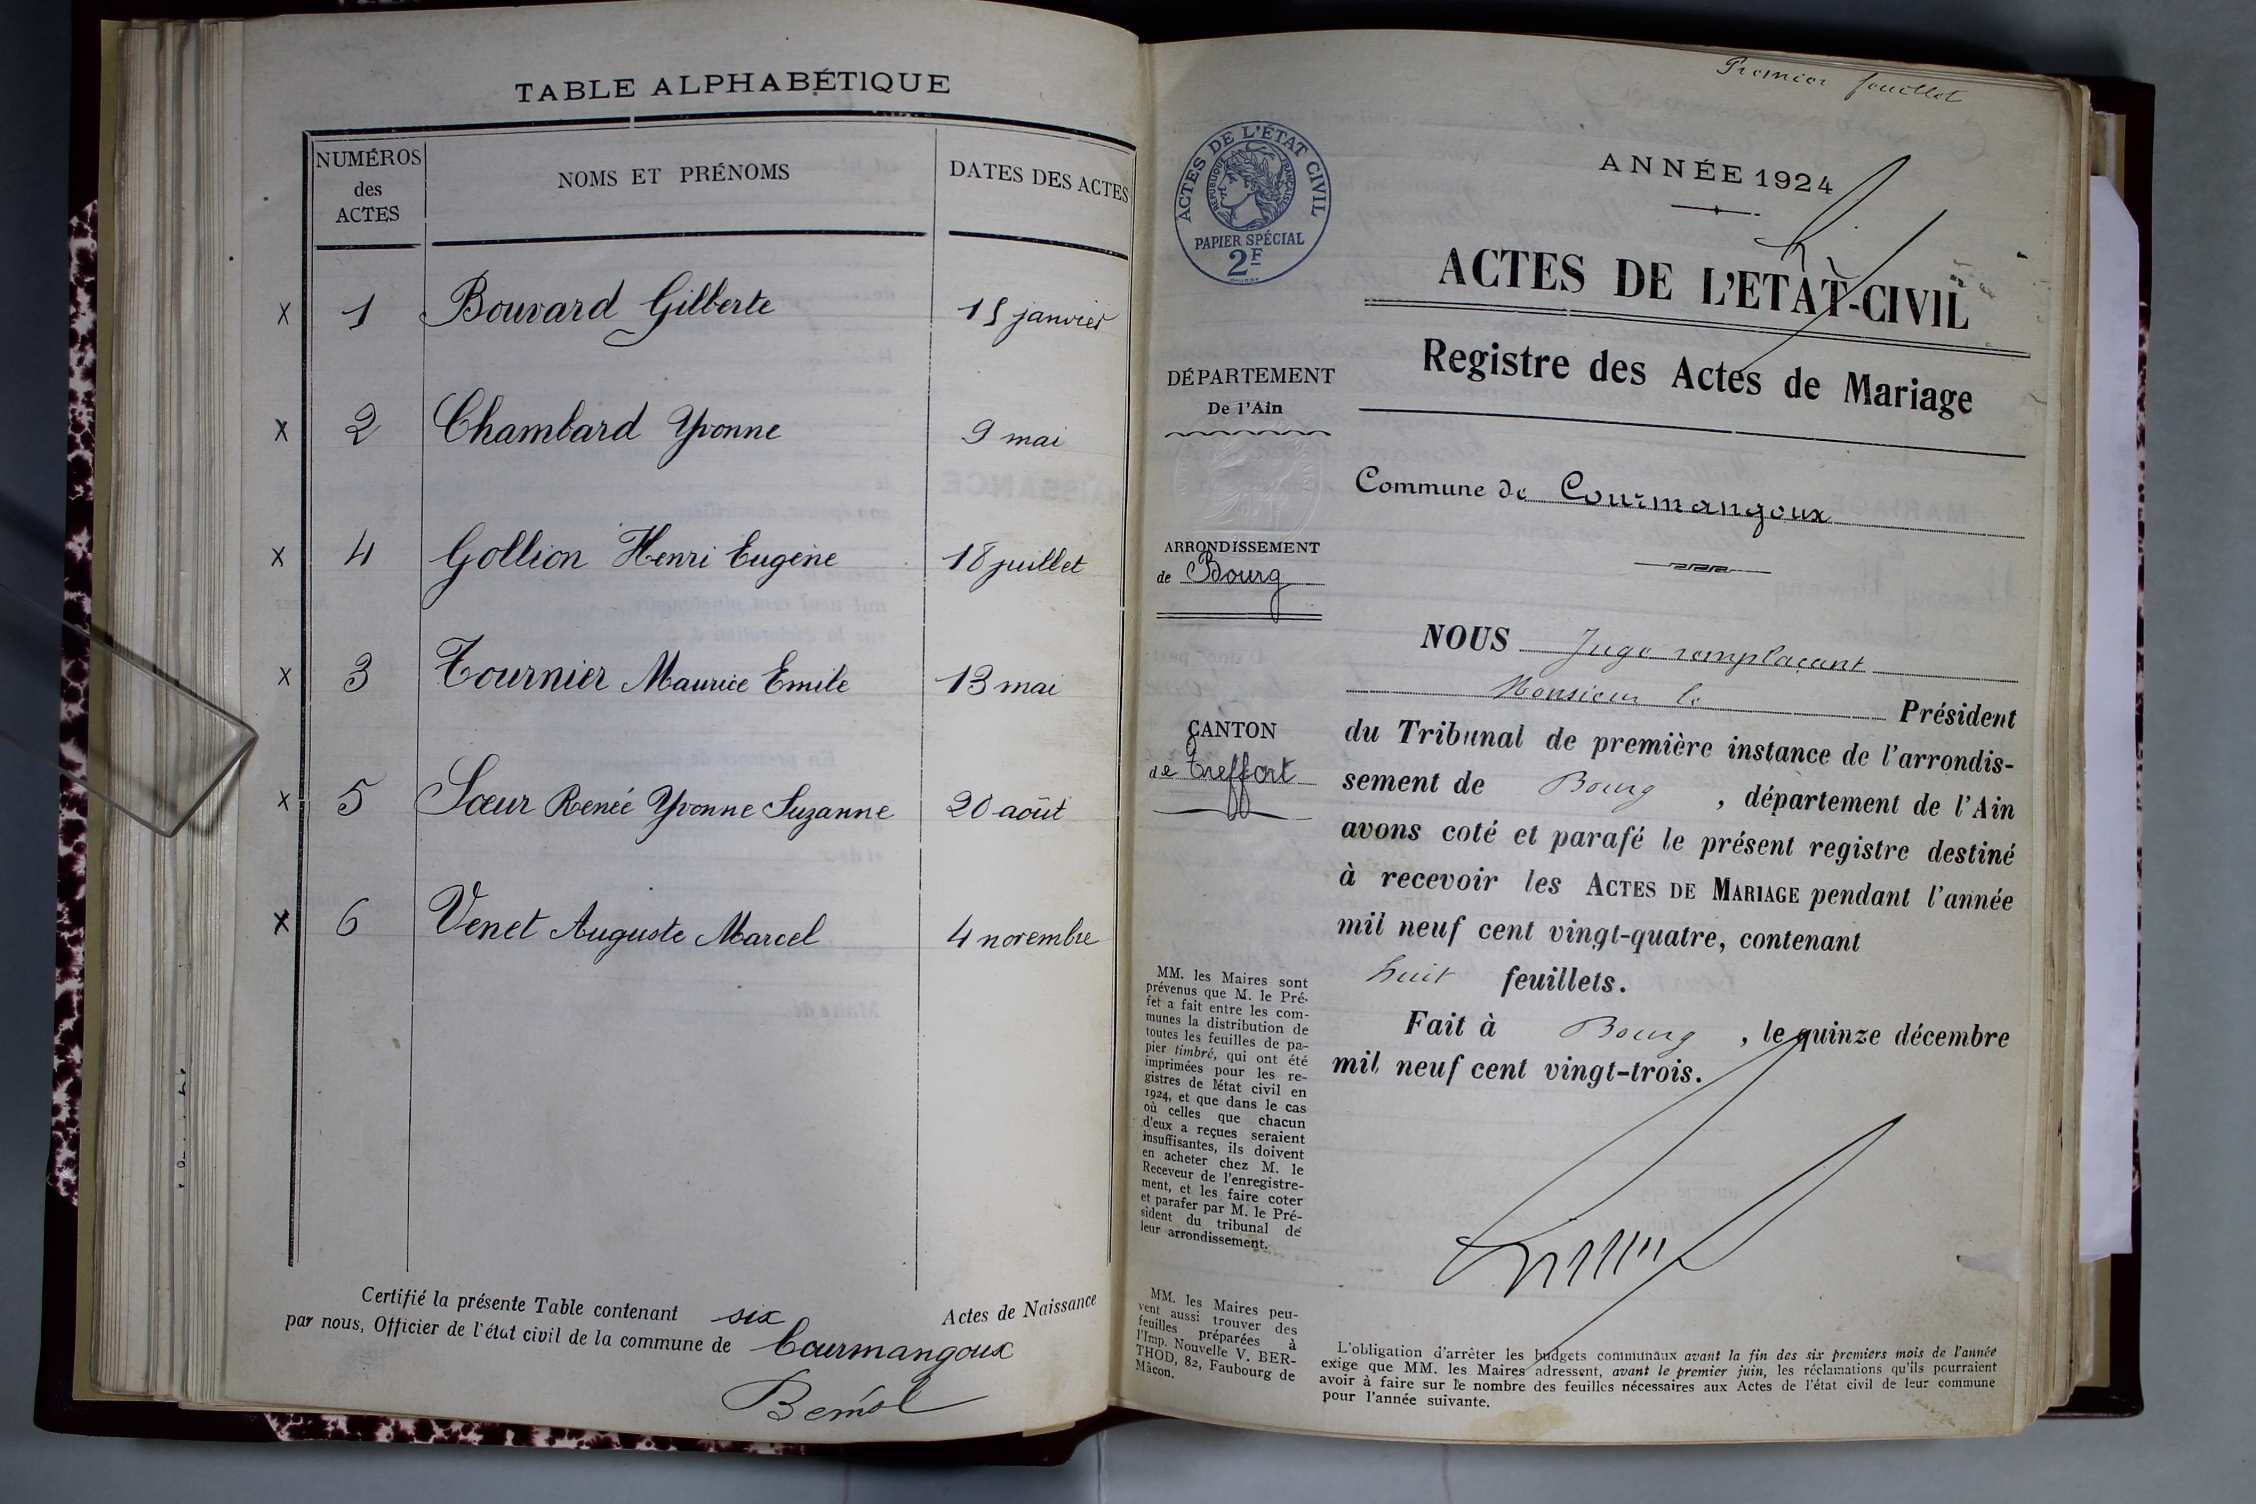 TABLE ALPHABÉTIQUE
NUMÉROS
des
ACTES
NOMS ET PRÉNOMS
DATES DES ACTES
x 1 Bouvard Gilberte 15 janvier
x 2 Chambard Yvonne 9 mai
x 4 Gollion Henri Eugène 18 juillet
x 3 Tournier Maurice Emile 13 mai
x 5 Sœur Renée Yvonne Suzanne 20 août
x 6 Venet Auguste Marcel 4 novembre
Certifié la présente Table contenant six Actes de Naissance
par nous, Officier de l'état civil de la commune de Courmangoux
Premier feuillet
ACTES DE L'ÉTAT CIVIL
RÉPUBLIQUE FRANÇAISE
PAPIER SPÉCIAL
2F
ANNÉE 1924
ACTES DE L'ETAT-CIVIL
Registre des Actes de Mariage
DÉPARTEMENT
De l'Ain
Commune de Courmangoux
ARRONDISSEMENT
de Bourg
CANTON
de Treffort
NOUS Juge remplaçant
Monsieur le Président
du Tribunal de première instance de l'arrondis-
sement de Bourg, département de l'Ain
avons coté et parafé le présent registre destiné
à recevoir les ACTES DE MARIAGE pendant l'année
mil neuf cent vingt-quatre, contenant
huit feuillets.
Fait à Bourg, le quinze décembre
mil neuf cent vingt-trois.
MM. les Maires sont
prévenus que M. le Pré-
fet a fait entre les com-
munes la distribution de
toutes les feuilles de pa-
pier timbré, qui ont été
imprimées pour les re-
gistres de l'état civil en
1924, et que dans le cas
où celles que chacun
d'eux a reçues seraient
insuffisantes, ils doivent
en acheter chez M. le
Receveur de l'enregistre-
ment, et les faire coter
et parafer par M. le Pré-
sident du tribunal de
leur arrondissement.
MM. les Maires peu-
vent aussi trouver des
feuilles préparées à
l'Imp. Nouvelle V. BER-
THOD, 82, Faubourg de
Mâcon.
L'obligation d'arrêter les budgets communaux avant la fin des six premiers mois de l'année
exige que MM. les Maires adressent, avant le premier juin, les réclamations qu'ils pourraient
avoir à faire sur le nombre des feuilles nécessaires aux Actes de l'état civil de leur commune
pour l'année suivante.